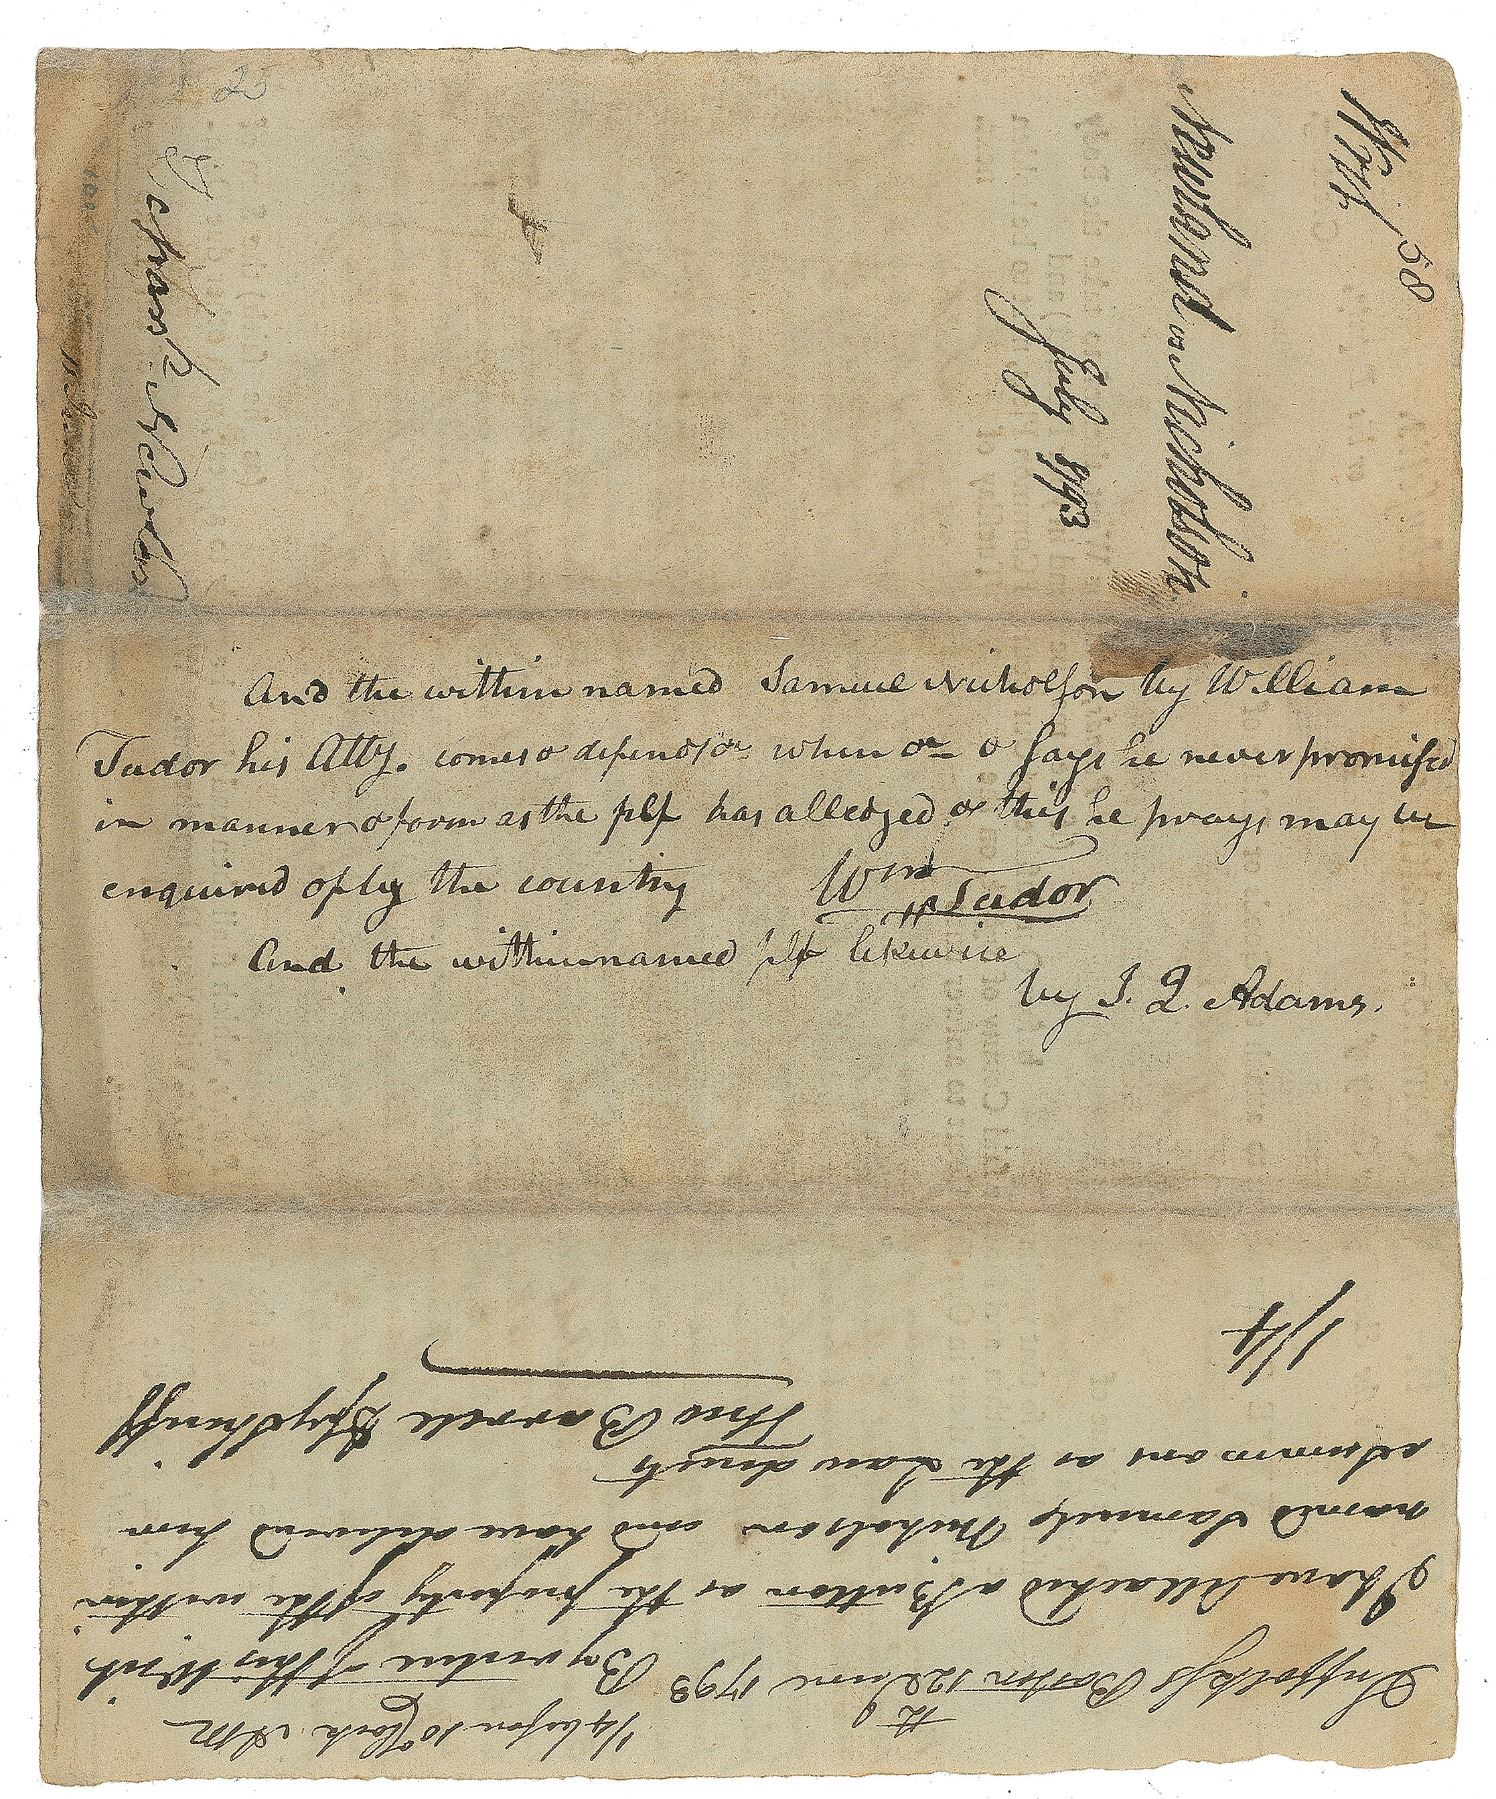 25
Writ 58
Newhouse vs Nicholson
July 1793
And the within named Samuel Nicholson by William
Tudor his Atty. comes & defends &c when &c & says he never promised
in manner & form as the plf has alledged & this he prays may be
enquired of by the country
Wm Tudor
And the within named plf likewise
by J. Q. Adams.
1/4 before 10 oClock AM
Suffolk Ss Boston 12th June 1793 By virtue of this Writ
I have Attached a Button as the property of the within
named Samuel Nicholson and have delivered him
a Summons as the Law directs
Thos Barrell Dpy Sheriff
1/4